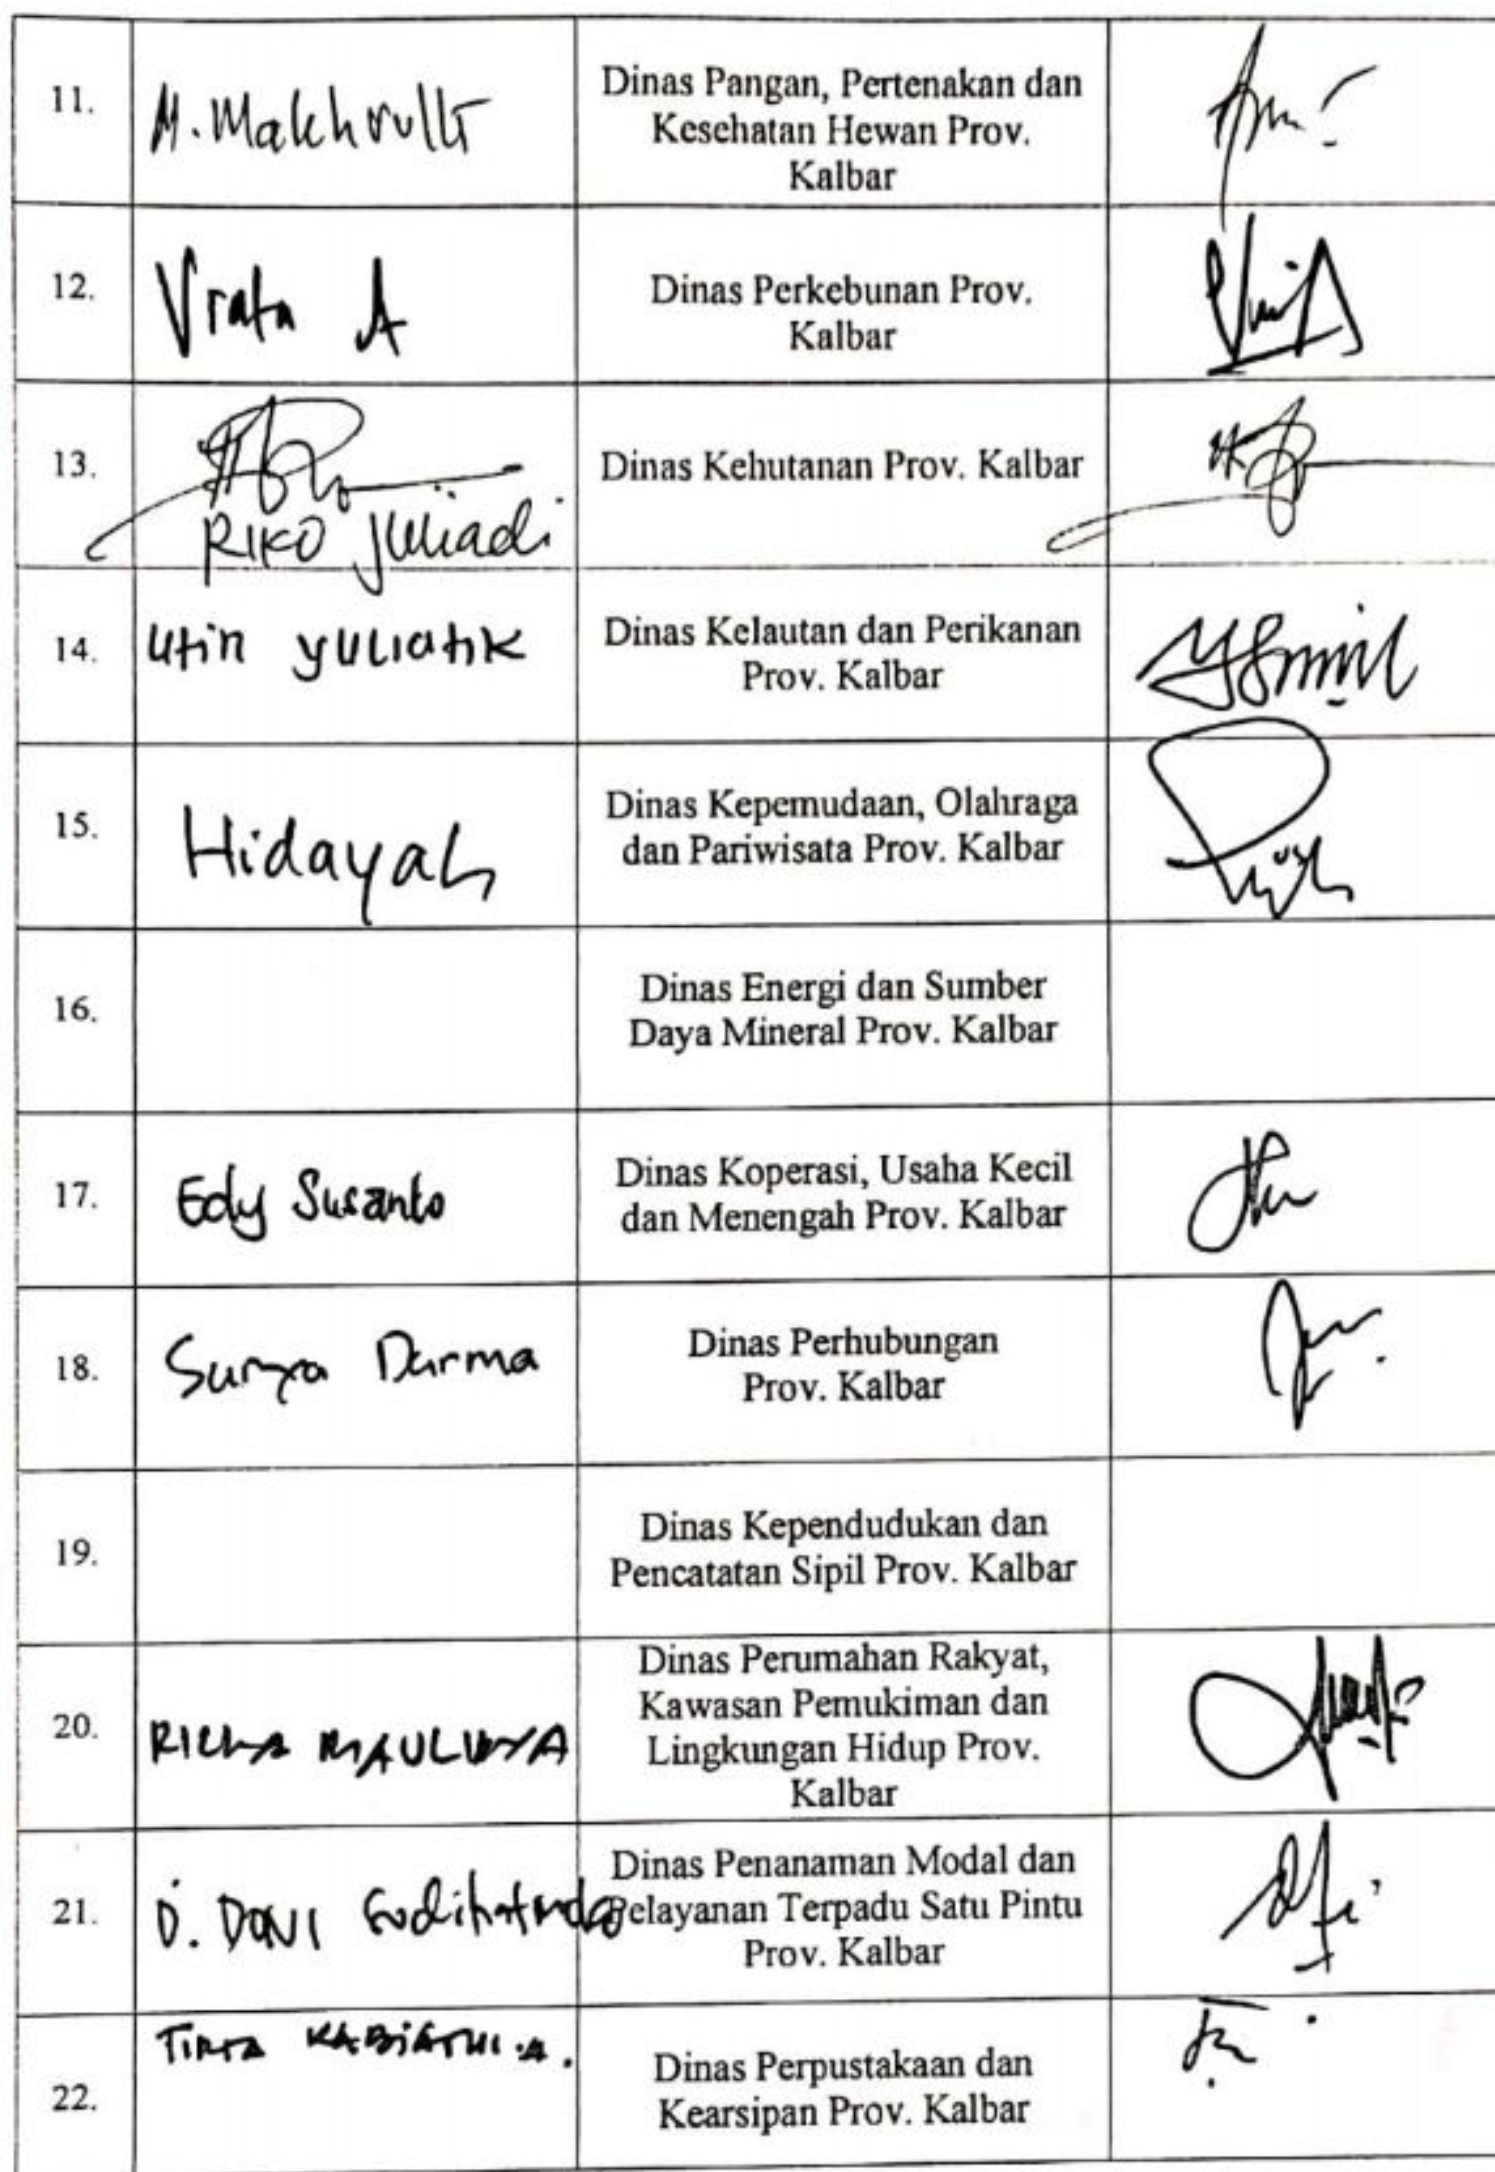 11.
M. Makhrulli
Dinas Pangan, Pertenakan dan
Kesehatan Hewan Prov.
Kalbar
12.
Vrata A
Dinas Perkebunan Prov.
Kalbar
13.
RIKO Juliadi
Dinas Kehutanan Prov. Kalbar
14.
Utin yuliatik
Dinas Kelautan dan Perikanan
Prov. Kalbar
15.
Hidayah
Dinas Kepemudaan, Olahraga
dan Pariwisata Prov. Kalbar
16.
Dinas Energi dan Sumber
Daya Mineral Prov. Kalbar
17.
Edy Susanto
Dinas Koperasi, Usaha Kecil
dan Menengah Prov. Kalbar
18.
Surya Darma
Dinas Perhubungan
Prov. Kalbar
19.
Dinas Kependudukan dan
Pencatatan Sipil Prov. Kalbar
20.
Dinas Perumahan Rakyat,
Kawasan Pemukiman dan
Lingkungan Hidup Prov.
Kalbar
21.
D. DONI
Dinas Penanaman Modal dan
Pelayanan Terpadu Satu Pintu
Prov. Kalbar
22.
Dinas Perpustakaan dan
Kearsipan Prov. Kalbar